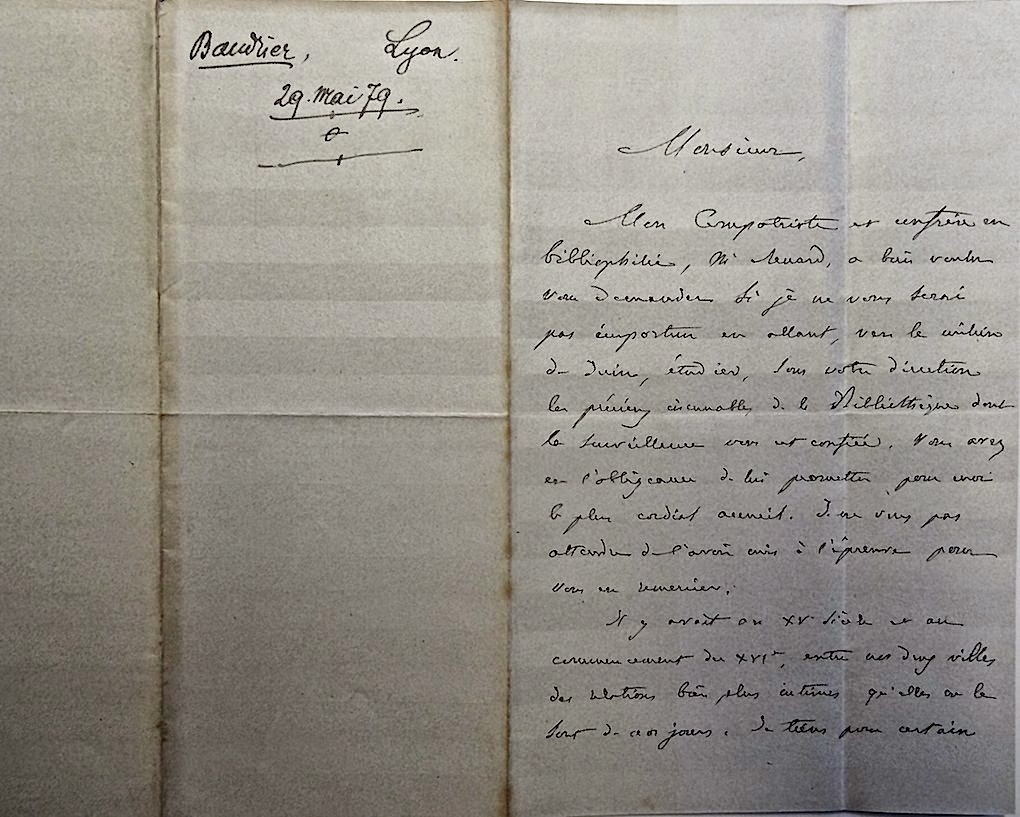 Baudrier, Lyon.
29. Mai 79.
Monsieur,
Mon Compatriote et confrère en
bibliophilie, Mr Renard, a bien voulu
vous demander si je ne vous serai
pas importun en allant, vers le milieu
de Juin, étudier, sous votre direction
les précieux incunables de la Bibliothèque dont
la surveillance vous est confiée. Vous avez
eu l'obligeance de lui promettre pour moi
le plus cordial accueil. Je ne veux pas
attendre de l'avoir mis à l'épreuve pour
vous en remercier.
Il y avait au XVe siècle et au
commencement du XVIe, entre nos deux villes
des relations bien plus intimes qu'elles ne le
sont de nos jours. Je tiens pour certain